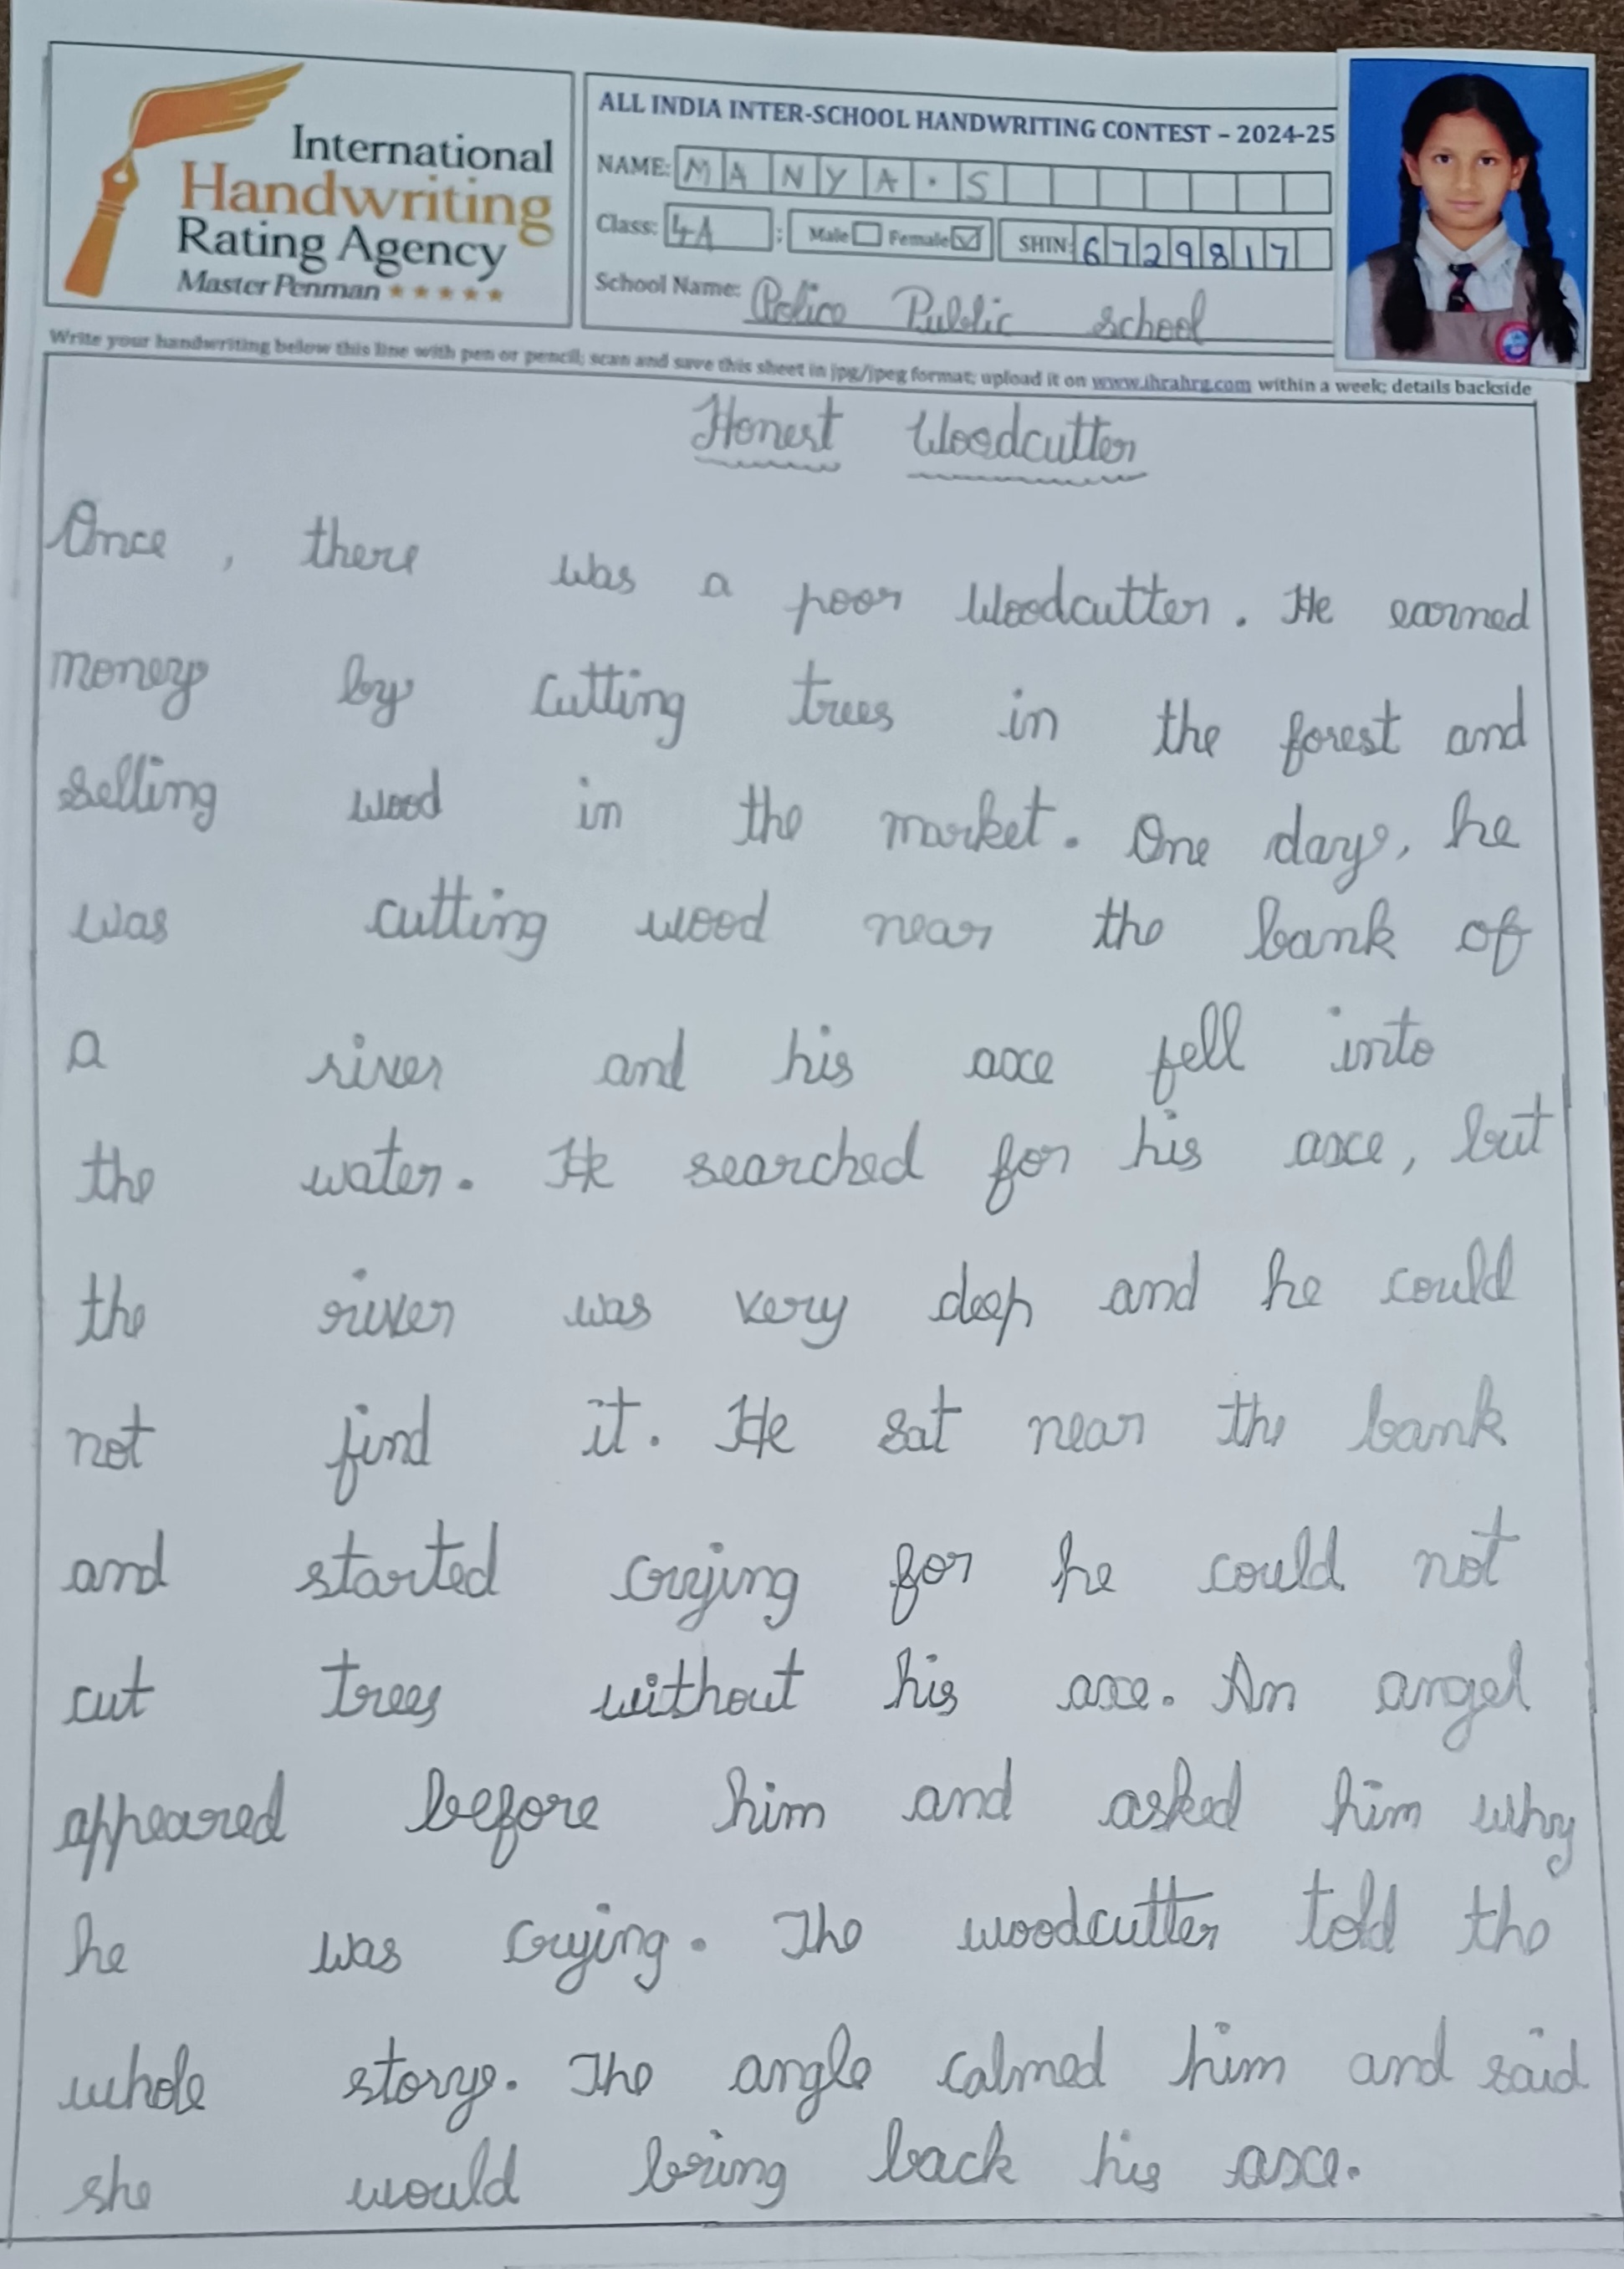 International
Handwriting
Rating Agency
Master Penman ★★★★★
ALL INDIA INTER-SCHOOL HANDWRITING CONTEST – 2024-25
NAME: MANYA.S
Class: 4A ; Male Female SHIN: 6729817
School Name: Police Public school
Write your handwriting below this line with pen or pencil; scan and save this sheet in jpg/jpeg format; upload it on www.ihrahrg.com within a week; details backside
Honest Woodcutter
Once, there was a poor Woodcutter. He earned
money by cutting trees in the forest and
selling wood in the market. One day, he
was cutting wood near the bank of
a river and his axe fell into
the water. He searched for his axe, but
the river was very deep and he could
not find it. He sat near the bank
and started crying for he could not
cut trees without his axe. An angel
appeared before him and asked him why
he was crying. The woodcutter told the
whole story. The angle calmed him and said
she would bring back his axe.